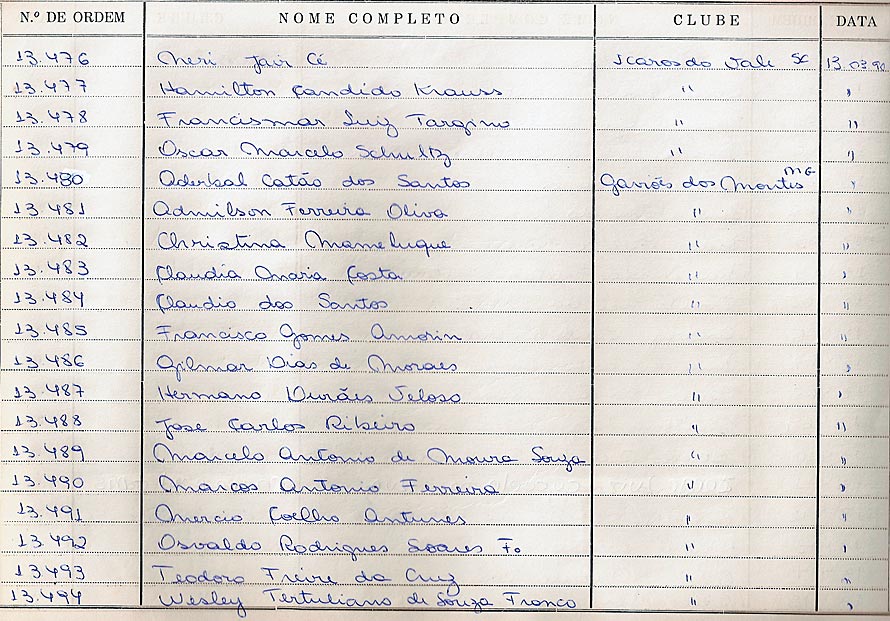 N.º DE ORDEM NOME COMPLETO CLUBE DATA
13.476 Neri Jair Cé Icaros do Vale SC 13.03.90
13.477 Hamilton Candido Krauss " "
13.478 Francismar Luiz Targino " "
13.479 Oscar Marcelo Schultz " "
13.480 Aderbal Catão dos Santos Gaviões dos Montes MG "
13.481 Admilson Ferreira Oliva " "
13.482 Christina Mameluque " "
13.483 Claudia Maria Costa " "
13.484 Claudio dos Santos " "
13.485 Francisco Gomes Amorin " "
13.486 Gilmar Dias de Moraes " "
13.487 Hermano Durães Veloso " "
13.488 Jose Carlos Ribeiro " "
13.489 Marcelo Antonio de Moura Souza " "
13.490 Marcos Antonio Ferreira " "
13.491 Mercio Coelho Antunes " "
13.492 Osvaldo Rodrigues Soares Fo " "
13.493 Teodoro Freire da Cruz " "
13.494 Wesley Tertuliano de Souza Franco " "